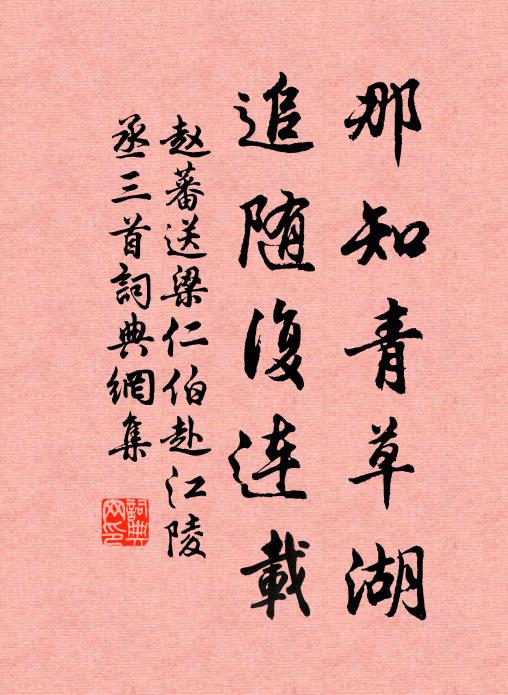 那知青草湖
追随復连載
赵蕃送梁仁伯赴江陵
丞三首詞典網集
詞典
网印